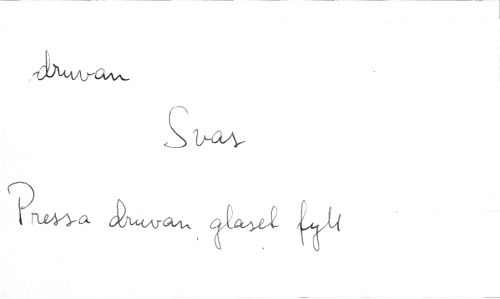 druvan
Svar
Pressa druvan, glaset fyll